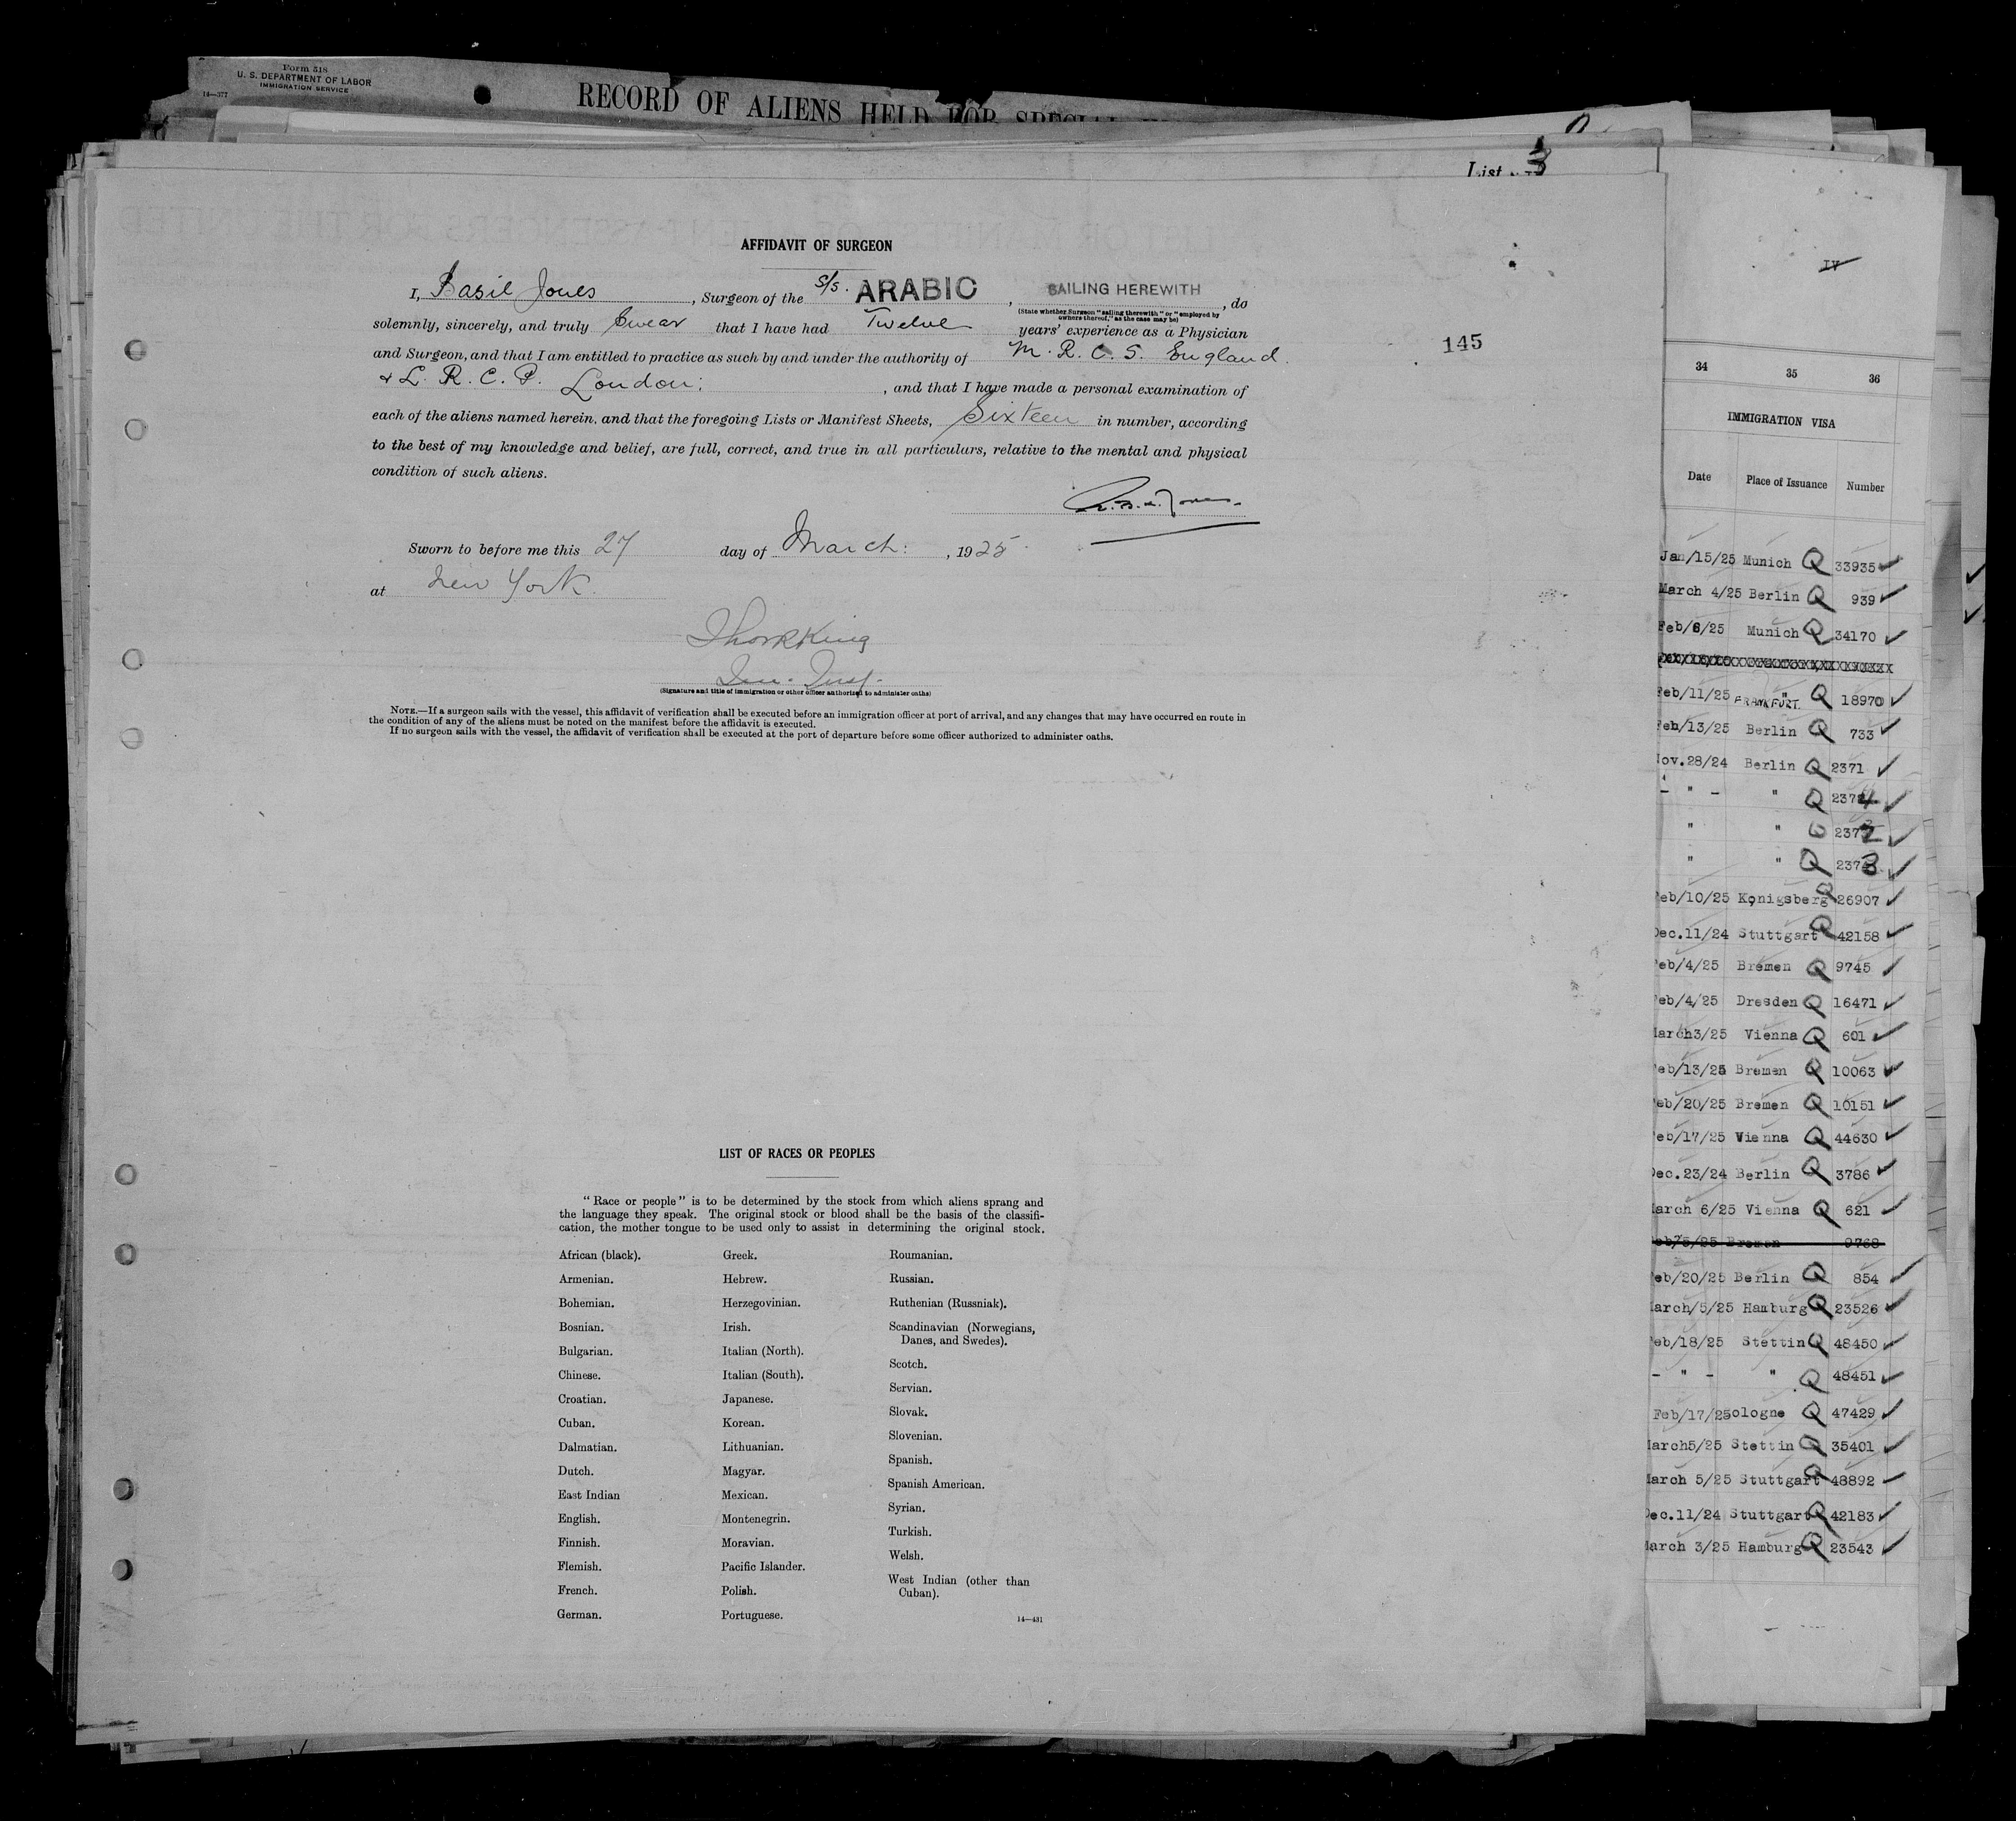 Form 518
U. S. DEPARTMENT OF LABOR
IMMIGRATION SERVICE
14—377
RECORD OF ALIENS HELD FOR SPECIAL
List 3
AFFIDAVIT OF SURGEON
I, Basil Jones, Surgeon of the S/S. ARABIC, SAILING HEREWITH, do
(State whether Surgeon "sailing therewith" or "employed by owners thereof," as the case may be)
solemnly, sincerely, and truly swear that I have had Twelve years' experience as a Physician
and Surgeon, and that I am entitled to practice as such by and under the authority of M. R. C. S. England.
+ L. R. C. P. London; , and that I have made a personal examination of
each of the aliens named herein, and that the foregoing Lists or Manifest Sheets, Sixteen in number, according
to the best of my knowledge and belief, are full, correct, and true in all particulars, relative to the mental and physical
condition of such aliens.
Jones
Sworn to before me this 27 day of March: , 1925.
at New York.
(Signature and title of immigration or other officer authorized to administer oaths)
NOTE.—If a surgeon sails with the vessel, this affidavit of verification shall be executed before an immigration officer at port of arrival, and any changes that may have occurred en route in
the condition of any of the aliens must be noted on the manifest before the affidavit is executed.
If no surgeon sails with the vessel, the affidavit of verification shall be executed at the port of departure before some officer authorized to administer oaths.
145
LIST OF RACES OR PEOPLES
"Race or people" is to be determined by the stock from which aliens sprang and
the language they speak. The original stock or blood shall be the basis of the classifi-
cation, the mother tongue to be used only to assist in determining the original stock.
African (black).
Armenian.
Bohemian.
Bosnian.
Bulgarian.
Chinese.
Croatian.
Cuban.
Dalmatian.
Dutch.
East Indian
English.
Finnish.
Flemish.
French.
German.
Greek.
Hebrew.
Herzegovinian.
Irish.
Italian (North).
Italian (South).
Japanese.
Korean.
Lithuanian.
Magyar.
Mexican.
Montenegrin.
Moravian.
Pacific Islander.
Polish.
Portuguese.
Roumanian.
Russian.
Ruthenian (Russniak).
Scandinavian (Norwegians,
Danes, and Swedes).
Scotch.
Servian.
Slovak.
Slovenian.
Spanish.
Spanish American.
Syrian.
Turkish.
Welsh.
West Indian (other than
Cuban).
14—431
IV
34 35 36
IMMIGRATION VISA
Date Place of Issuance Number
Jan/15/25 Munich Q 33935
March 4/25 Berlin Q 939
Feb/6/25 Munich Q 34170
Feb/11/25 " FRANKFURT. Q 18970
Feb/13/25 Berlin Q 733
Nov.28/24 Berlin Q 2371
- " - " Q 2374
" " Q 2372
" " Q 2373
Feb/10/25 Konigsberg Q 26907
Dec.11/24 Stuttgart Q 42158
Feb/4/25 Bremen Q 9745
Feb/4/25 Dresden Q 16471
March3/25 Vienna Q 601
Feb/13/25 Bremen Q 10063
Feb/20/25 Bremen Q 10151
Feb/17/25 Vienna Q 44630
Dec.23/24 Berlin Q 3786
March 6/25 Vienna Q 621
Feb/5/25 Bremen 9768
Feb/20/25 Berlin Q 854
March/5/25 Hamburg Q 23526
Feb/18/25 Stettin Q 48450
- " - " Q 48451
Feb/17/25ologne Q 47429
March5/25 Stettin Q 35401
March 5/25 Stuttgart Q 48892
Dec.11/24 Stuttgart Q 42183
March 3/25 Hamburg Q 23543